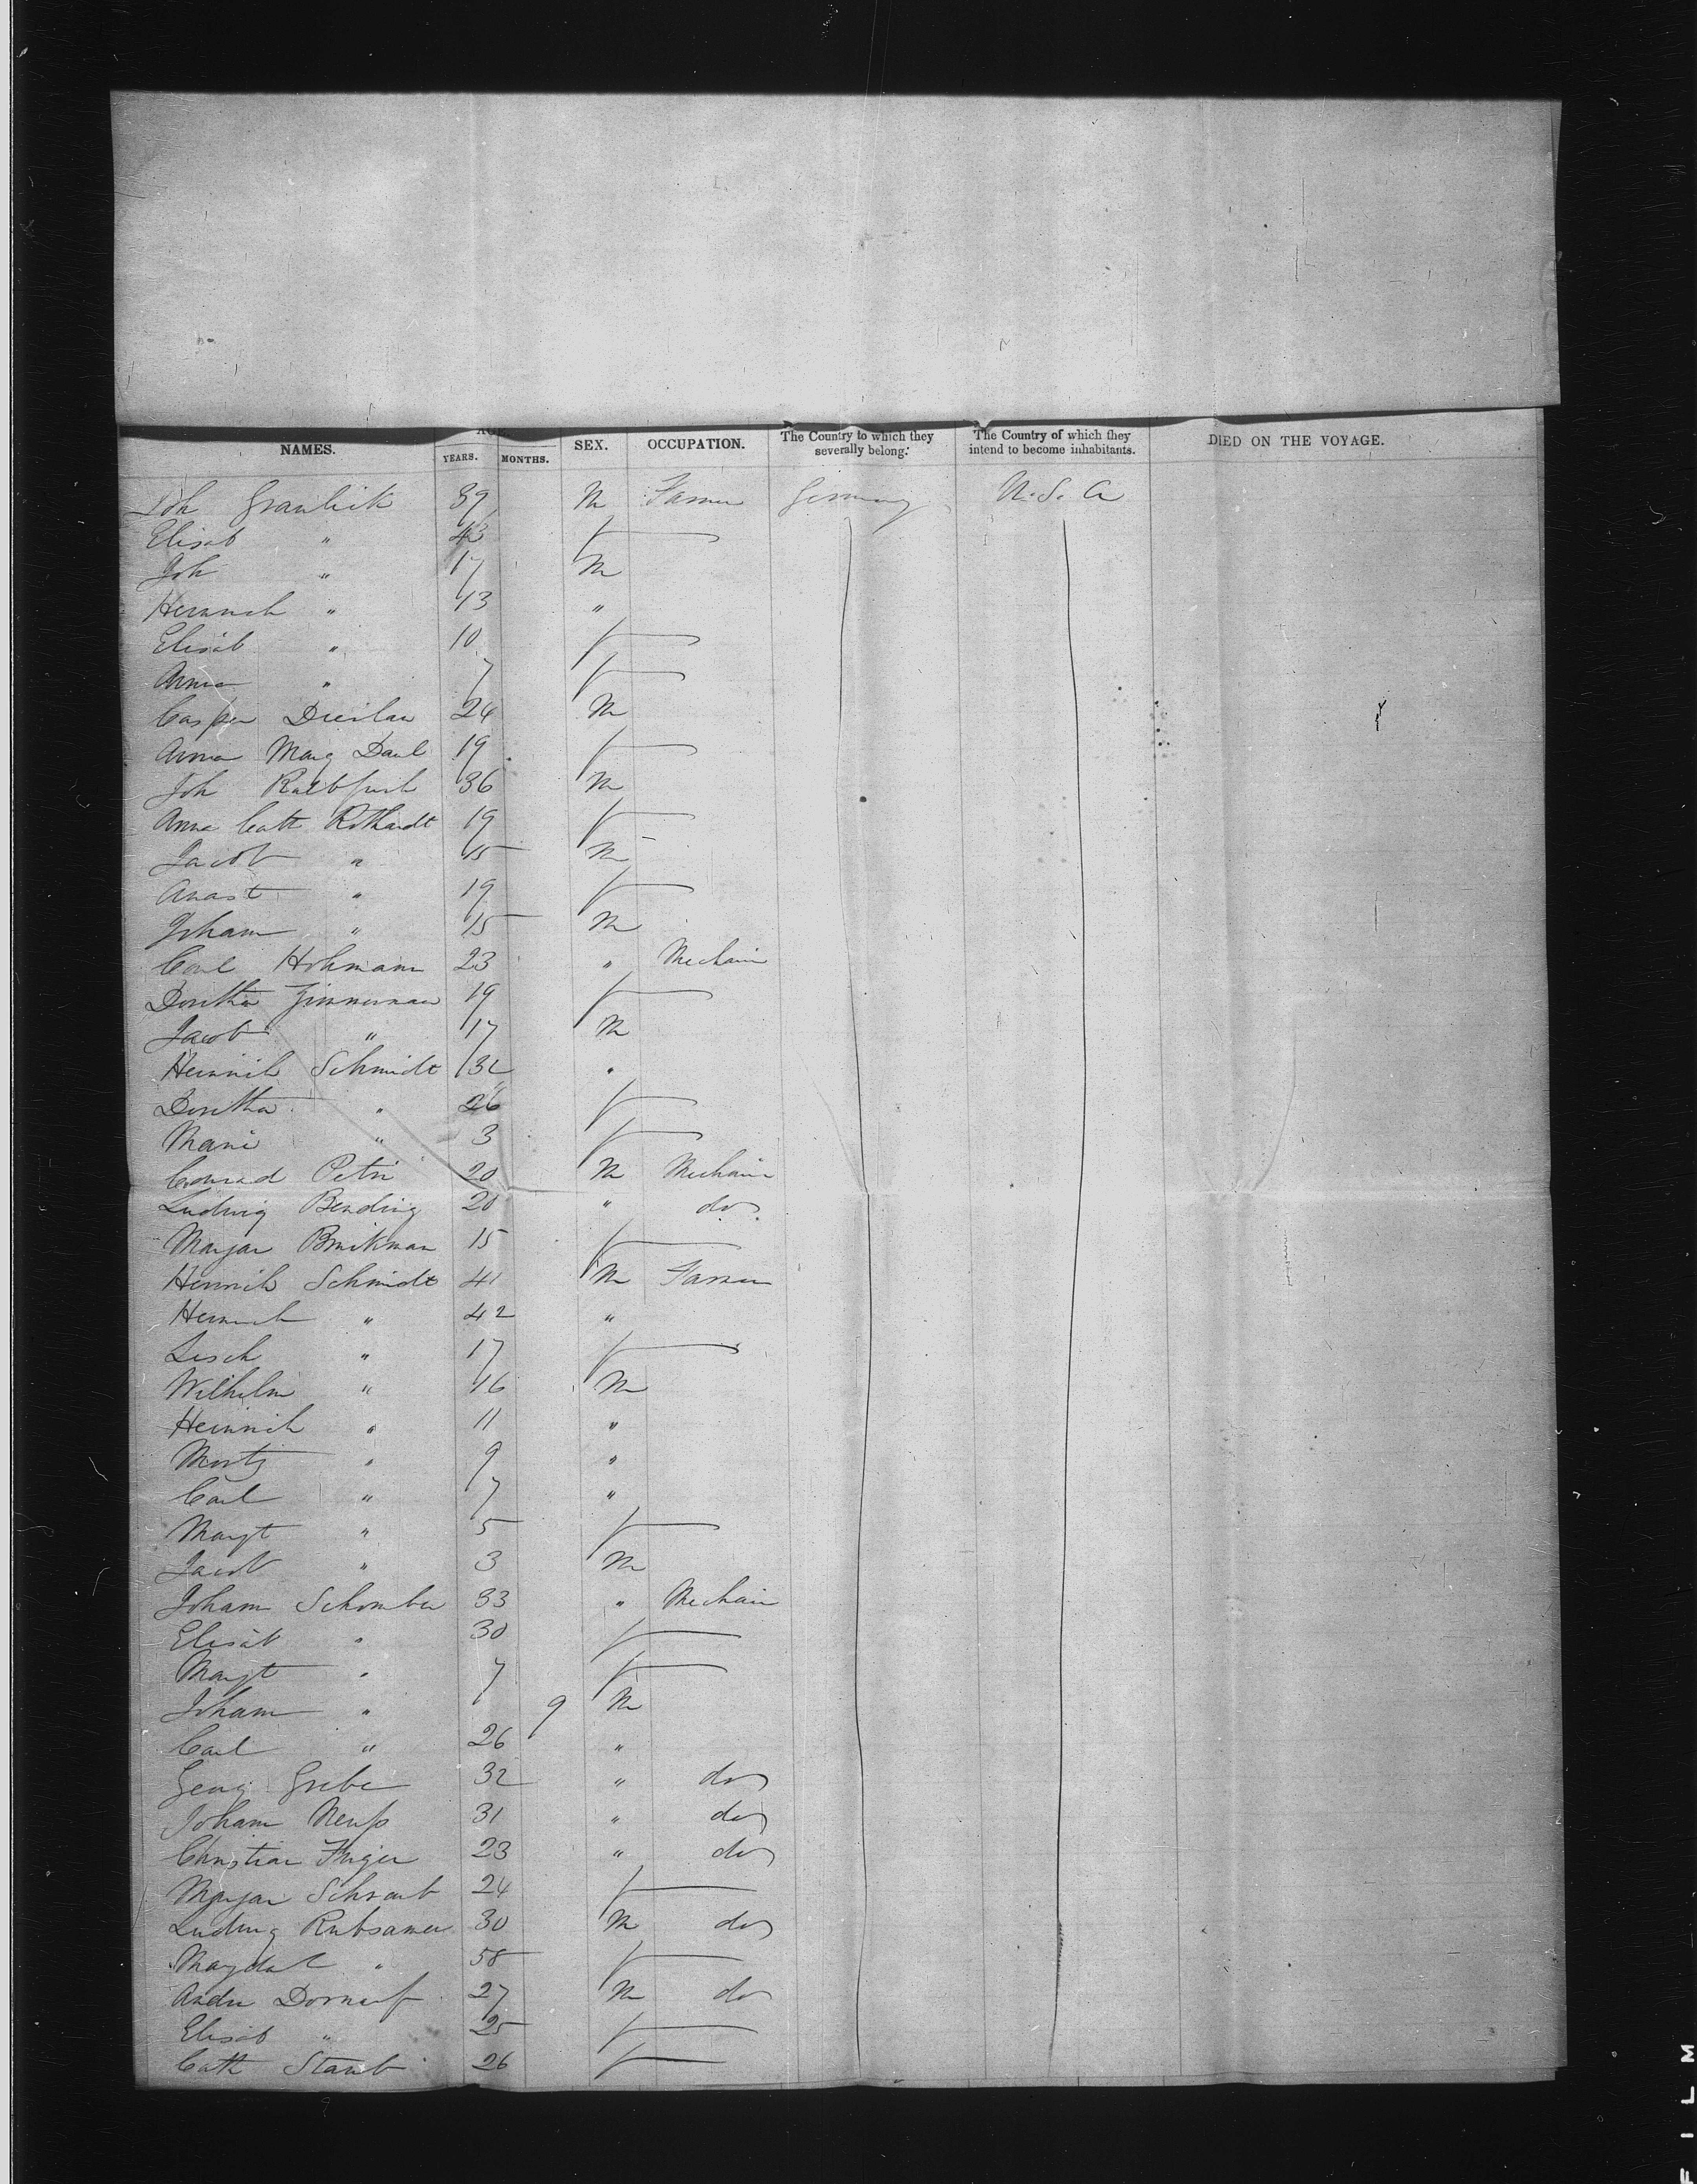 AGE.
NAMES. YEARS. MONTHS. SEX. OCCUPATION. The Country to which they severally belong. The Country of which they intend to become inhabitants. DIED ON THE VOYAGE.
Joh Graulich 39 M Farmer Germany U. S. A
Elisab " 43 f
Joh " 17 M
Heinrich " 13 "
Elisab " 10 f
Anna " 7 f
Casper 24 M
Anna Marg Daul 19 f
Joh 36 M
Anna Cath Rothardt 19 f
Jacob " 15 M
Anast " 19 f
Johann " 15 M
Carl Hohmann 23 " Mechain
Dorotha Zimmerman 19 f
Jacob " 17 M
Heinrich Schmidt 32 "
Dorotha " 26 f
Marie " 3 f
Conrad Petri 20 M Mechain
Ludwig Bending 20 " do
Margar Brinkman 15 f
Heinrich Schmidt 41 M Farmer
Heinrich " 42 "
Lisch " 17 f
Wilhelm " 16 M
Heinrich " 11 "
Moritz " 9 "
Carl " 7 "
Margt " 5 f
Jacob " 3 M
Johann Schomber 33 " Mechain
Elisab " 30 f
Margt " 7 f
Johann " 9 M
Carl " 26 "
Georg Grebe 32 " do
Johann Neuß 31 " do
Christian 23 " do
Margar Schraub 24 f
Ludwig Rubsamen 30 M do
Magdal " 58 f
Andre Dornauf 27 M do
Elisab " 25 f
Cath Staub 26 f
FILM